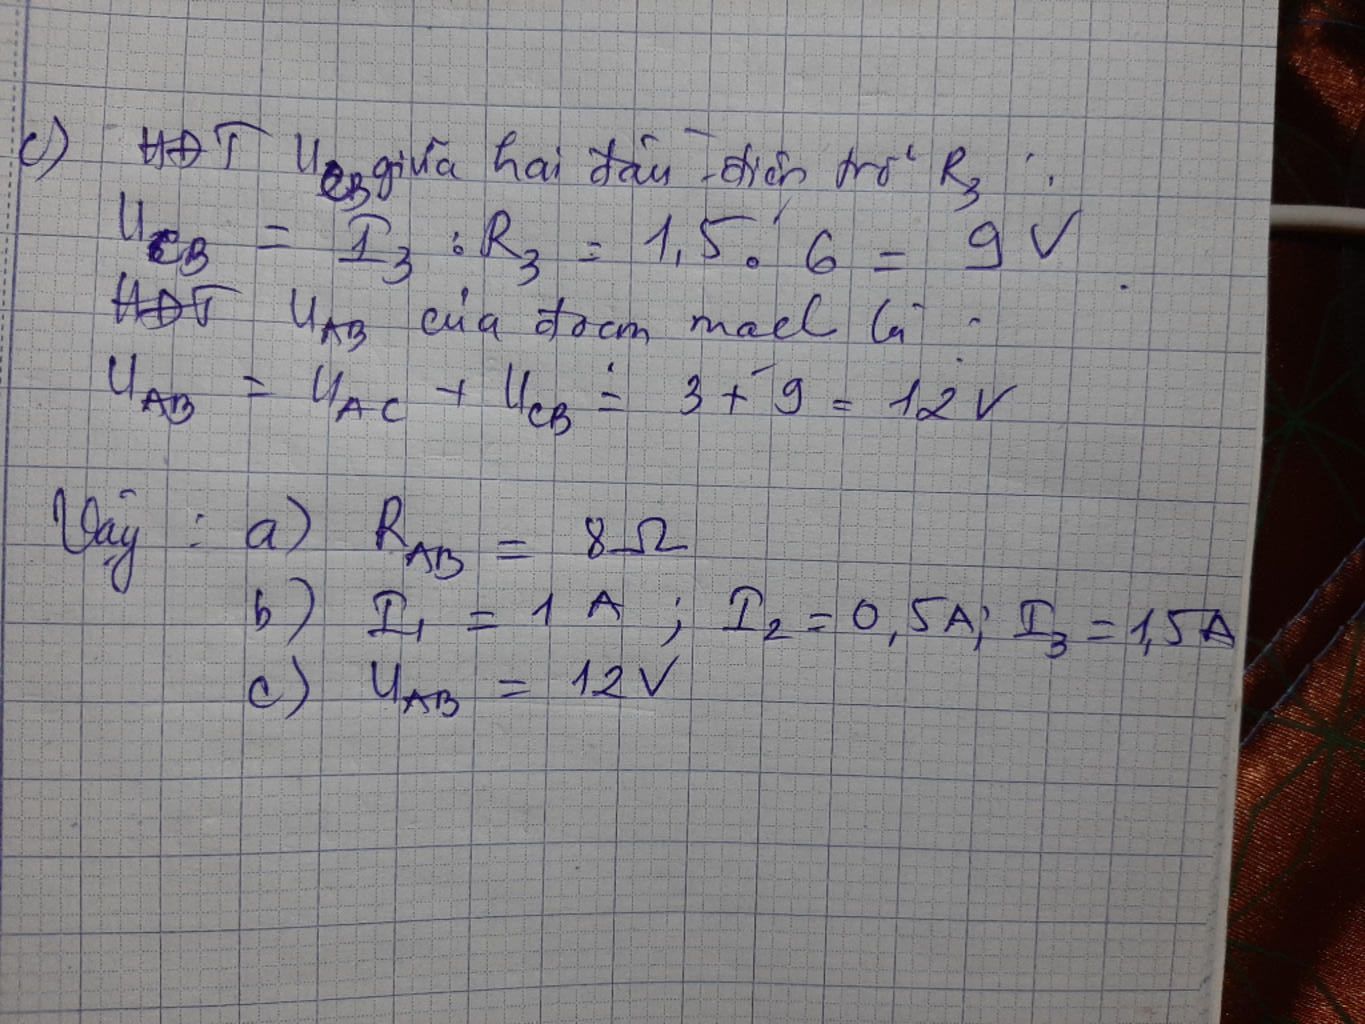 c) HĐT U_CB giữa hai đầu điện trở R_3 :
U_CB = I_3 . R_3 = 1,5 . 6 = 9 V
HĐT U_AB của đoạn mạch là :
U_AB = U_AC + U_CB = 3 + 9 = 12 V
Vậy : a) R_AB = 8 Ω
b) I_1 = 1 A ; I_2 = 0,5A; I_3 = 1,5A
c) U_AB = 12 V